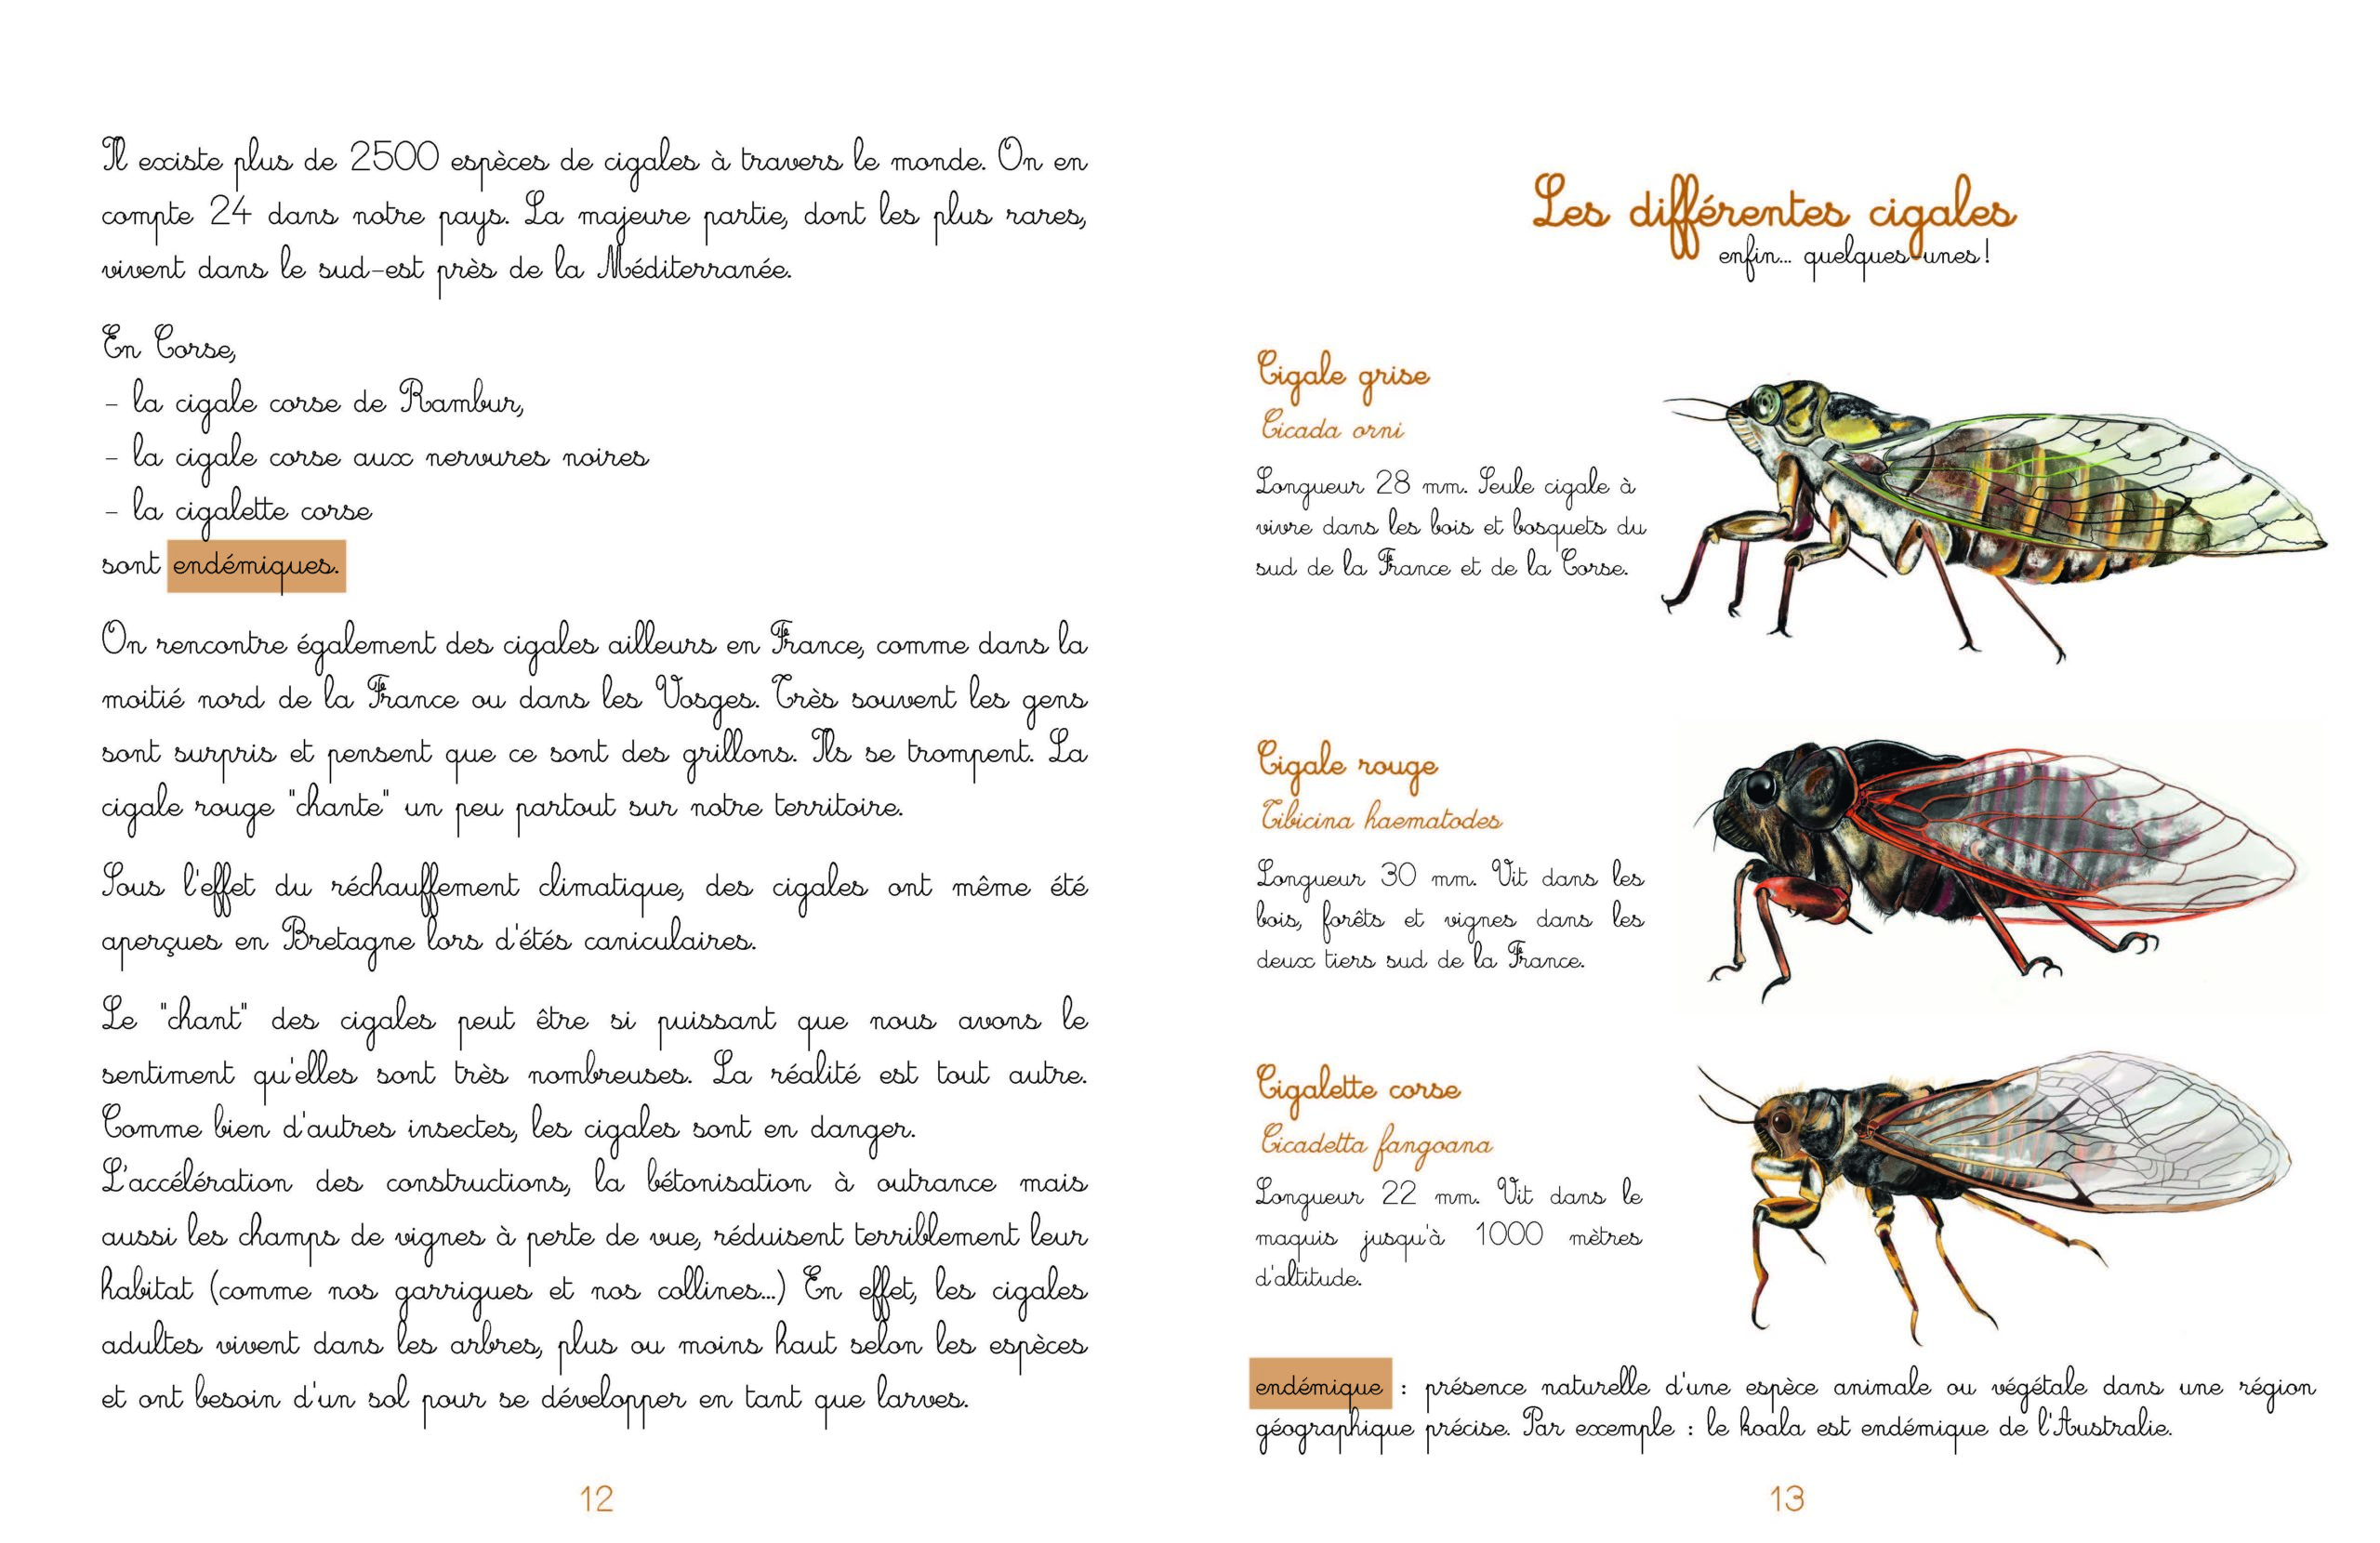 Il existe plus de 2500 espèces de cigales à travers le monde. On en
compte 24 dans notre pays. La majeure partie, dont les plus rares,
vivent dans le sud-est près de la Méditerranée.
En Corse,
- la cigale corse de Rambur,
- la cigale corse aux nervures noires
- la cigalette corse
sont endémiques.
On rencontre également des cigales ailleurs en France, comme dans la
moitié nord de la France ou dans les Vosges. Très souvent les gens
sont surpris et pensent que ce sont des grillons. Ils se trompent. La
cigale rouge "chante" un peu partout sur notre territoire.
Sous l'effet du réchauffement climatique, des cigales ont même été
aperçues en Bretagne lors d'étés caniculaires.
Le "chant" des cigales peut être si puissant que nous avons le
sentiment qu'elles sont très nombreuses. La réalité est tout autre.
Comme bien d'autres insectes, les cigales sont en danger.
L'accélération des constructions, la bétonisation à outrance mais
aussi les champs de vignes à perte de vue, réduisent terriblement leur
habitat (comme nos garrigues et nos collines...) En effet, les cigales
adultes vivent dans les arbres, plus ou moins haut selon les espèces
et ont besoin d'un sol pour se développer en tant que larves.
12
Les différentes cigales
enfin... quelques-unes !
Cigale grise
Cicada orni
Longueur 28 mm. Seule cigale à
vivre dans les bois et bosquets du
sud de la France et de la Corse.
Cigale rouge
Tibicina haematodes
Longueur 30 mm. Vit dans les
bois, forêts et vignes dans les
deux tiers sud de la France.
Cigalette corse
Cicadetta fangoana
Longueur 22 mm. Vit dans le
maquis jusqu'à 1000 mètres
d'altitude.
endémique : présence naturelle d'une espèce animale ou végétale dans une région
géographique précise. Par exemple : le koala est endémique de l'Australie.
13